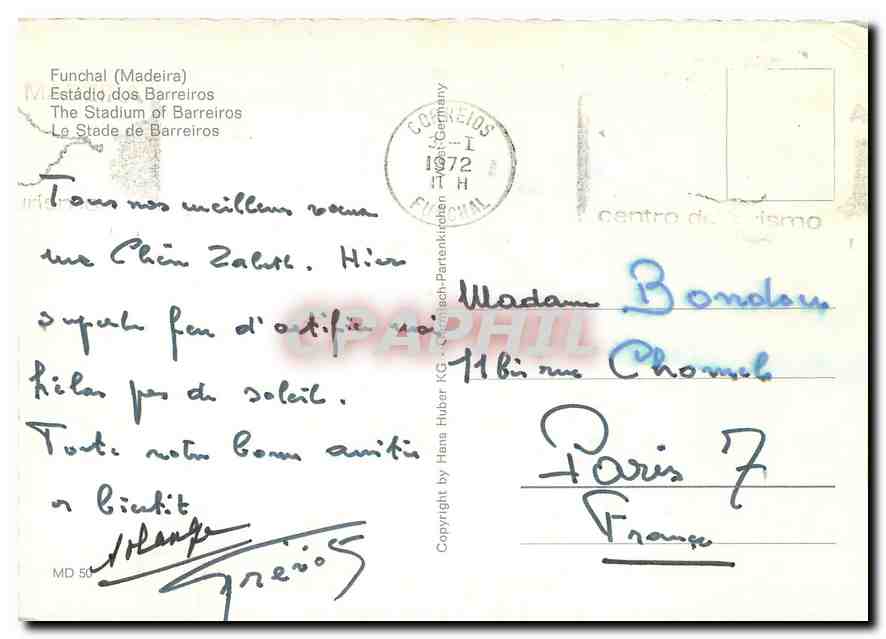 Funchal (Madeira)
Estádio dos Barreiros
The Stadium of Barreiros
Le Stade de Barreiros
CORREIOS
1972
11 H
FUNCHAL
centro de turismo
Tous nos meilleurs vœux
ma Chère. Hier
superbe feu d'artifice mais
hélas pas de soleil.
Toute notre bonne amitié
a bientôt
Solange
MD 50
Copyright by Hans Huber KG - Garmisch-Partenkirchen West-Germany
CPAPHIL
Madame
11 bis rue Chomel
Paris 7
France